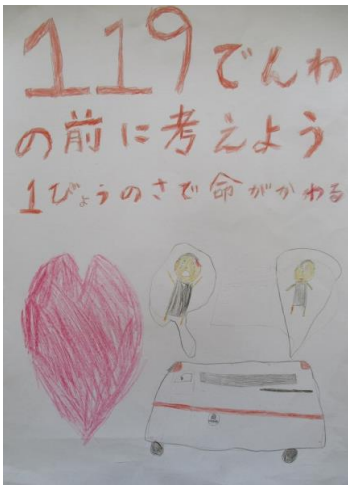 119でんわ
の前に考えよう
1びょうのさで命がかわる